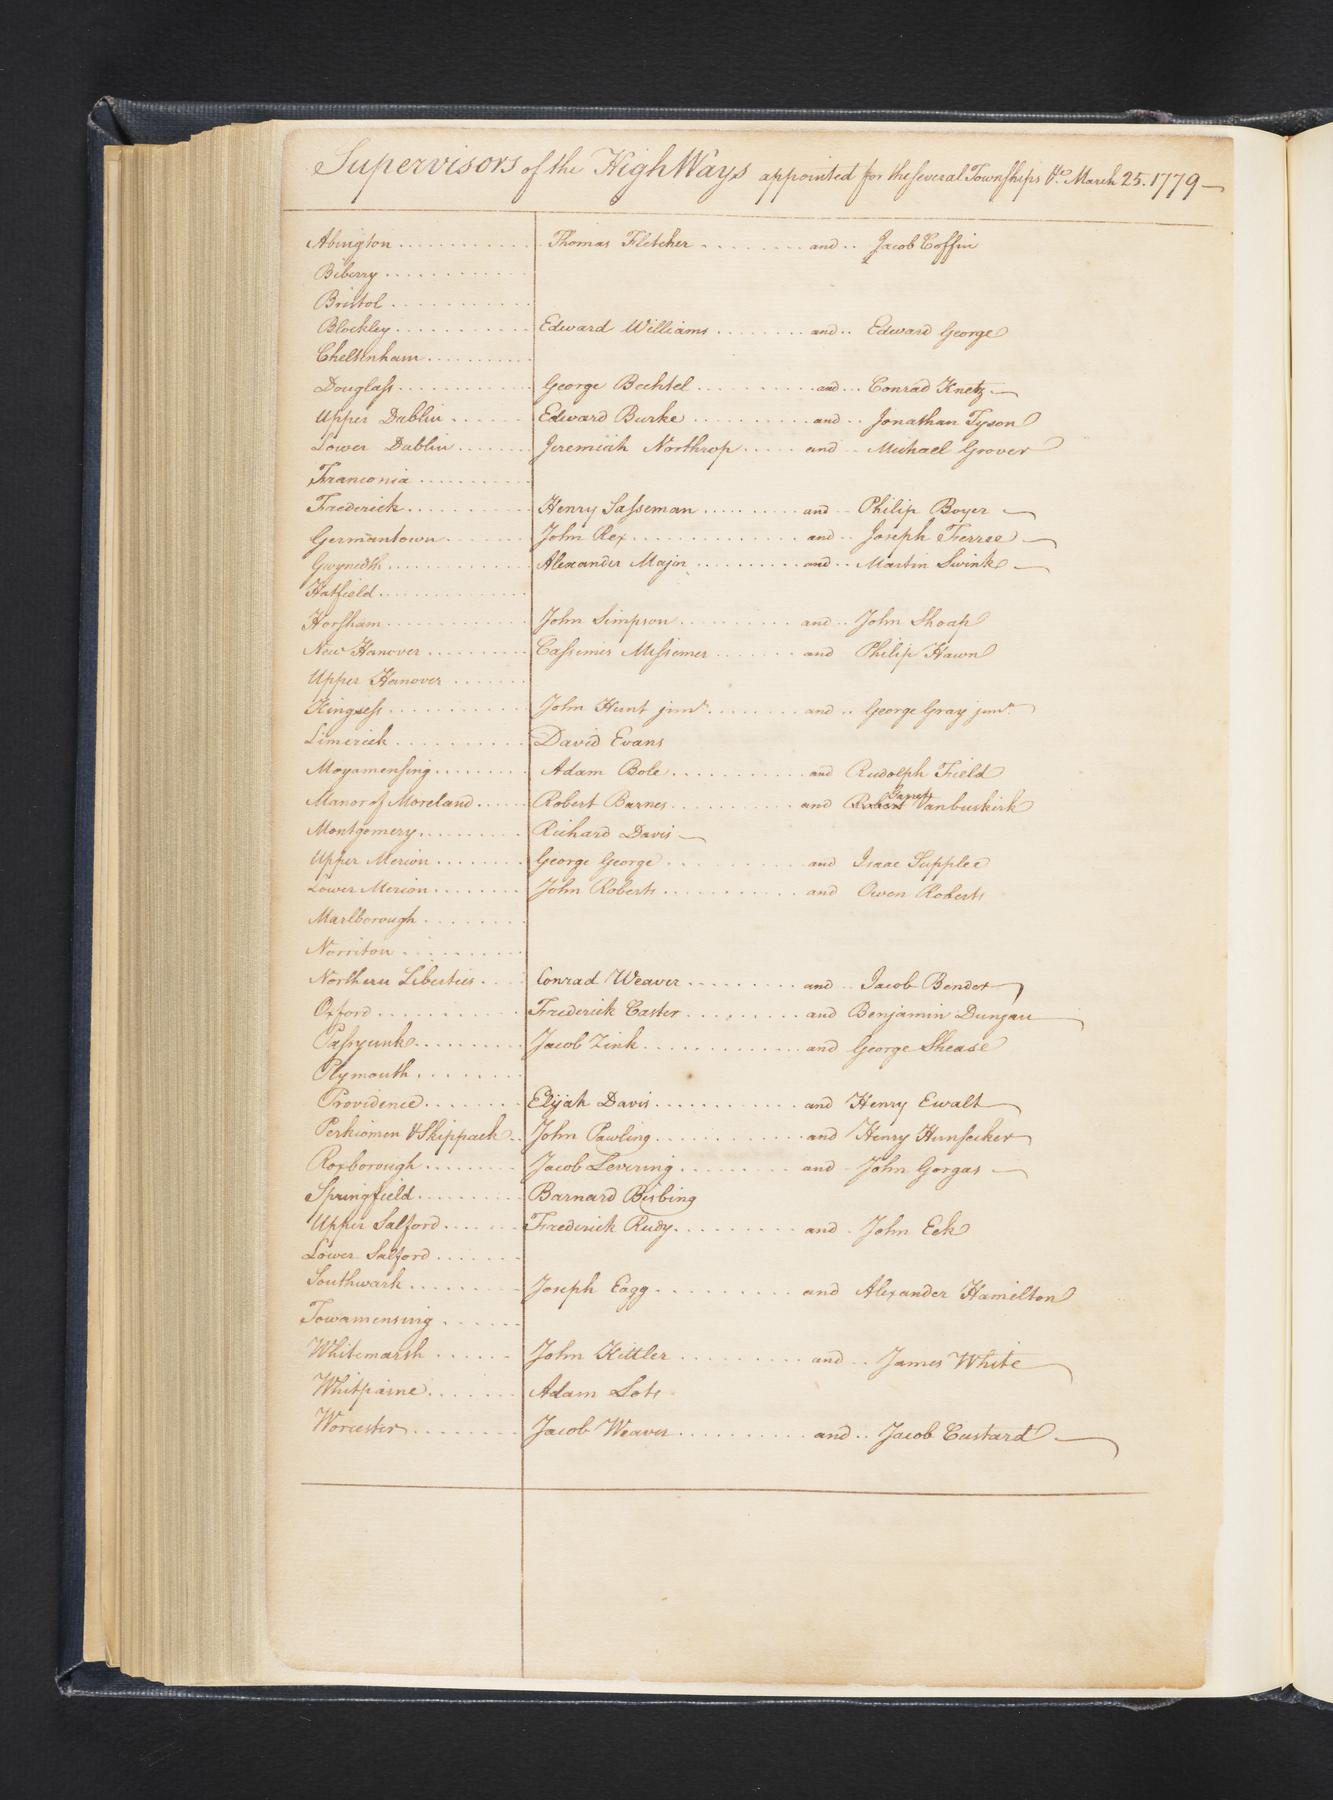 Supervisors of the High Ways appointed for the several Townships &c. March 25. 1779
Abington . . . . . . . . . . . . Thomas Fletcher . . . . . . . . and . . Jacob Coffin
Biberry . . . . . . . . . . .
Bristol . . . . . . . . . . .
Blockley . . . . . . . . . . . Edward Williams . . . . . . . . and . . Edward George
Cheltenham . . . . . . . . . .
Douglass . . . . . . . . . . . George Bechtel . . . . . . . . . . and . . . Conrad Knetz
Upper Dublin . . . . . . Edward Burke . . . . . . . . . . and . . Jonathan Tyson
Lower Dublin . . . . . . . Jeremiah Northrop . . . . . and . . Michael Grover
Franconia . . . . . . . . . .
Frederick . . . . . . . . . . . Henry Sasseman . . . . . . . . . and . . Philip Boyer
Germantown . . . . . . . John Rex . . . . . . . . . . . . . . and . . Joseph Ferree
Gwynedth . . . . . . . . . . . . Alexander Major . . . . . . . . . . and . . Martin Swink
Hatfield . . . . . . . . . . . . .
Horsham . . . . . . . . . . . . John Simpson . . . . . . . . . . and . . John Shoap
New Hanover . . . . . . . . . Cassimer Missemer . . . . . . . and Philip Hawn
Upper Hanover . . . . . . .
Kingsess . . . . . . . . . . . . John Hunt junr. . . . . . . . . and . . George Gray junr.
Limerick . . . . . . . . . . . David Evans
Moyamensing . . . . . . . . Adam Bole . . . . . . . . . . . and Rudolph Field
Manor of Moreland . . . . . Robert Barnes . . . . . . . . . . and Vanbuskirk
Montgomery . . . . . . . . . Richard Davis
Upper Merion . . . . . . . . George George . . . . . . . . . . and Isaac Supplee
Lower Merion . . . . . . . . John Roberts . . . . . . . . . . and Owen Roberts
Marlborough . . . . . . . .
Norriton . . . . . . . . . .
Northern Liberties . . . . Conrad Weaver . . . . . . . . . and . . Jacob Bender
Oxford . . . . . . . . . . . Frederick Caster . . . . . . . . . and Benjamin Dungan
Passyunk . . . . . . . . . . Jacob Zink . . . . . . . . . . . . . and George Shease
Plymouth . . . . . . . .
Providence . . . . . . . . Elijah Davis . . . . . . . . . . . . and Henry Ewalt
Perkiomen & Skippack . . John Pawling . . . . . . . . . . . . and Henry Hunsecker
Roxborough . . . . . . . . Jacob Levering . . . . . . . . . . and John Gorgas
Springfield . . . . . . . . . Barnard Bisbing
Upper Salford . . . . . . . Frederick Rudy . . . . . . . . . . and John Eck
Lower Salford . . . . . . .
Southwark . . . . . . . . . Joseph Eagg . . . . . . . . . . . and Alexander Hamilton
Towamensing . . . . . .
Whitemarsh . . . . . . John Kittler . . . . . . . . . . and . . James White
Whitpaine . . . . . . . Adam Lots
Worcester . . . . . . . . Jacob Weaver . . . . . . . . . . . and . . Jacob Custard